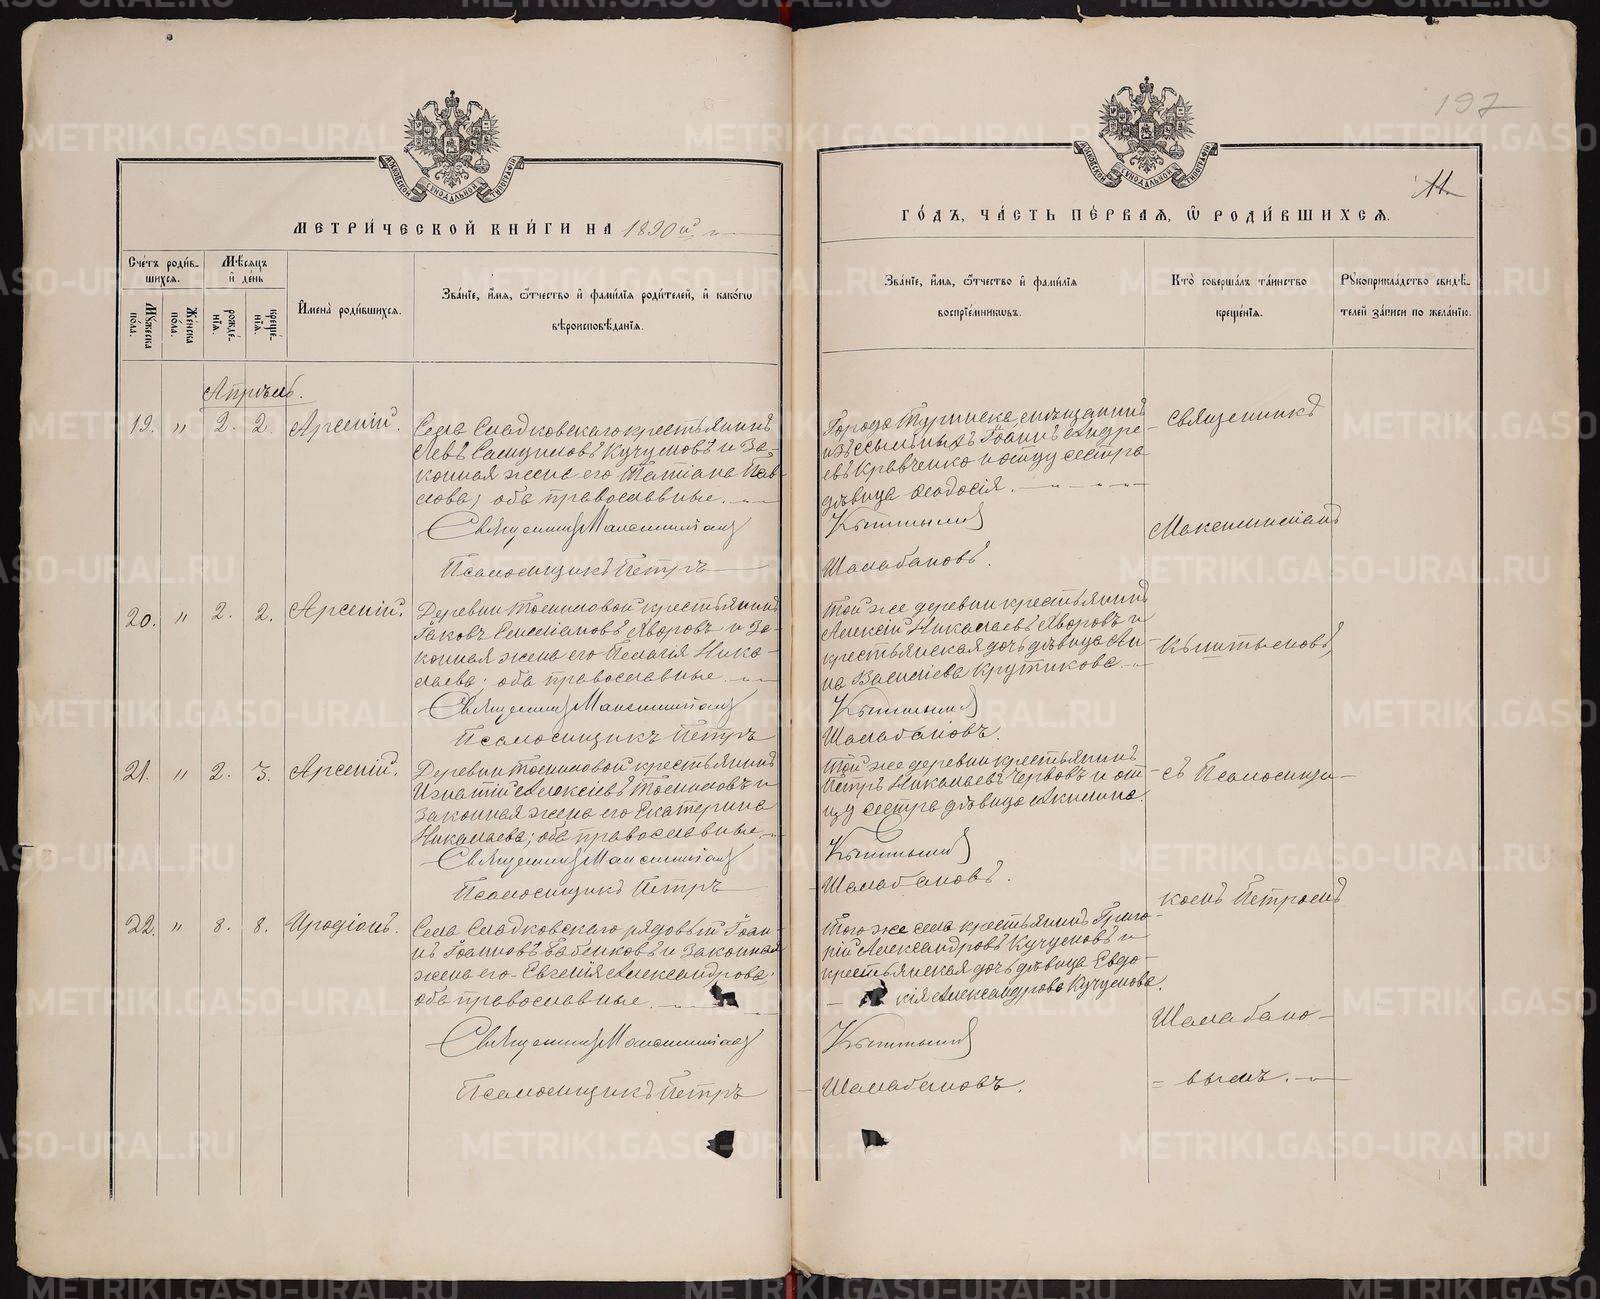 197
11.
МЕТРИ́ЧЕСКОЙ КНИ́ГИ НА 1890й г.
ГО́ДЪ, ЧА́СТЬ ПЕ́РВАЯ, Ѽ РОДИ́ВШИХСЯ.
Сче́тъ роди́в-
шихся.
Мѣ́сяцъ
и҆ де́нь
Мꙋ́жеска
по́ла.
Же́нска
по́ла.
рожде́-
нїѧ.
креще́-
нїѧ.
И҆мена̀ роди́вшихся.
Зва́нїе, и҆́мѧ, ѻ҆́тчество и҆ фами́лїѧ роди́телей, и҆ како́гѡ
вѣроисповѣ́данїѧ.
Зва́нїе, и҆́мѧ, ѻ҆́тчество и҆ фами́лїѧ
воспрїе́мникѡвъ.
Кто̀ соверша́лъ та́инство
креще́нїѧ.
Рꙋкоприкла́дство свидѣ́-
телей за́писи по жела́нїю.
Апрѣль.
19. " 2. 2. Арсеній.
Села Сладковскаго крестьянинъ
Левъ Кучумовъ и за-
конная жена его Татіана Пав-
лова; оба православные.
Священникъ Максиміанъ
Псаломщикъ Петръ
Города Туринска, мѣщанинъ
изъ ссыльныхъ Іоаннъ Андре-
евъ Кравченко и отцу сестра
дѣвица Ѳеодосія.
Кыштымовъ
Шалабановъ.
20. " 2. 2. Арсеній.
Деревни Томиловой крестьянинъ
Іаковъ Яворовъ и за-
конная жена его Пелагія Нико-
лаева; оба православные.
Священникъ Максиміанъ
Псаломщикъ Петръ
Той же деревни крестьянинъ
Алексій Николаевъ Яворовъ и
крестьянская дочь дѣвица Ан-
на Василіева Крутикова.
Кыштымовъ
Шалабановъ.
21. " 2. 3. Арсеній.
Деревни Томиловой крестьянинъ
Игнатій Алексіевъ Томиловъ и
законная жена его Екатерина
Николаева; оба православные.
Священникъ Максиміанъ
Псаломщикъ Петръ
Той же деревни крестьянинъ
Петръ Николаевъ и от-
цу сестра дѣвица Акилина.
Кыштымовъ
Шалабановъ.
22. " 8. 8. Иродіонъ.
Села Сладковскаго рядовый Іоан-
нъ Іоанновъ Бабенковъ и законная
жена его Евгенія Александрова;
оба православные.
Священникъ Максиміанъ
Псаломщикъ Петръ
Того же села крестьянинъ Григо-
рій Александровъ Кучумовъ и
крестьянская дочь дѣвица Евдо-
кія Александрова Кучумова.
Кыштымовъ
Шалабановъ.
Священникъ
Максиміанъ
Кыштымовъ,
съ Псаломщи-
комъ Петромъ
Шалабано-
вымъ.